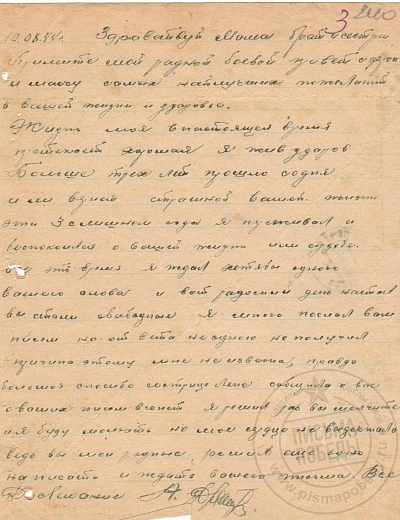 10.08.44г. Здравствуй Мама брат сестри
Примите мой радной боевой привет с фрон
и массу самых наилучших пожеланий
в вашей жизни и здоровье.
Жизнь моя в настоящея время
протекает хорошая я жив здаров
Больше трех лет прошло со дня
страшной вашей жизни
эти 3 слишном года я тужил и
беспокоился о вашей жизни или судьбе.
это время я ждал хотябы одного
вашего слова и вот радосный день настал
вы стали свободные я много послал вам
писем но от вата неодного не получил
причина этому мне не извесна, правдо
большое спосибо сестрице Лене сообщила о вас
я решил раз вы молчите
и я буду молчать но мое сердце не выдержало
ведь вы мои родные решил еще одно
написать и ждать вашего письма. Все
Досвидание А.
ПИСЬМА ПОБЕДЫ
www.pismapobedy.ru